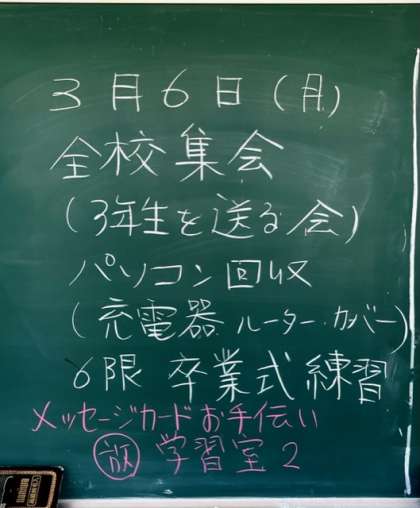 3月6日(月)
全校集会
(3年生を送る会)
パソコン回収
(充電器 ルーター・カバー)
6限 卒業式練習
メッセージカードお手伝い
放 学習室2